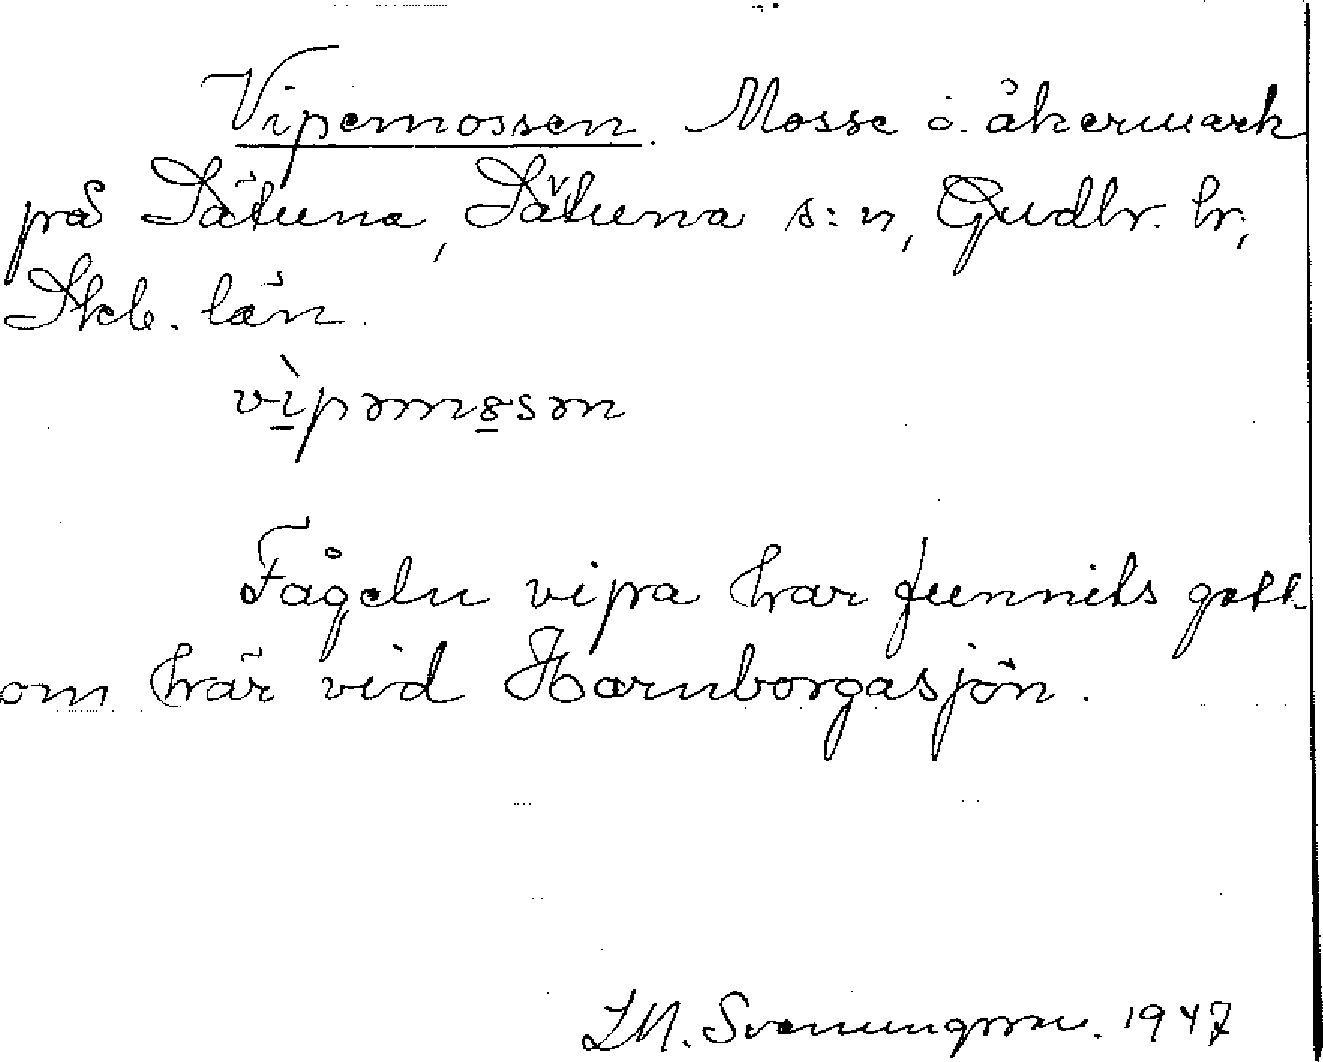 Vipemossen. Mosse o. åkermark
på Sätuna, Sätuna s:n, Gudhr. hr,
Skb. län.
vìpəmɷsən
Fågeln vipa har funnits gott
om här vid Hornborgasjön.
L M. Svanungsson. 1947